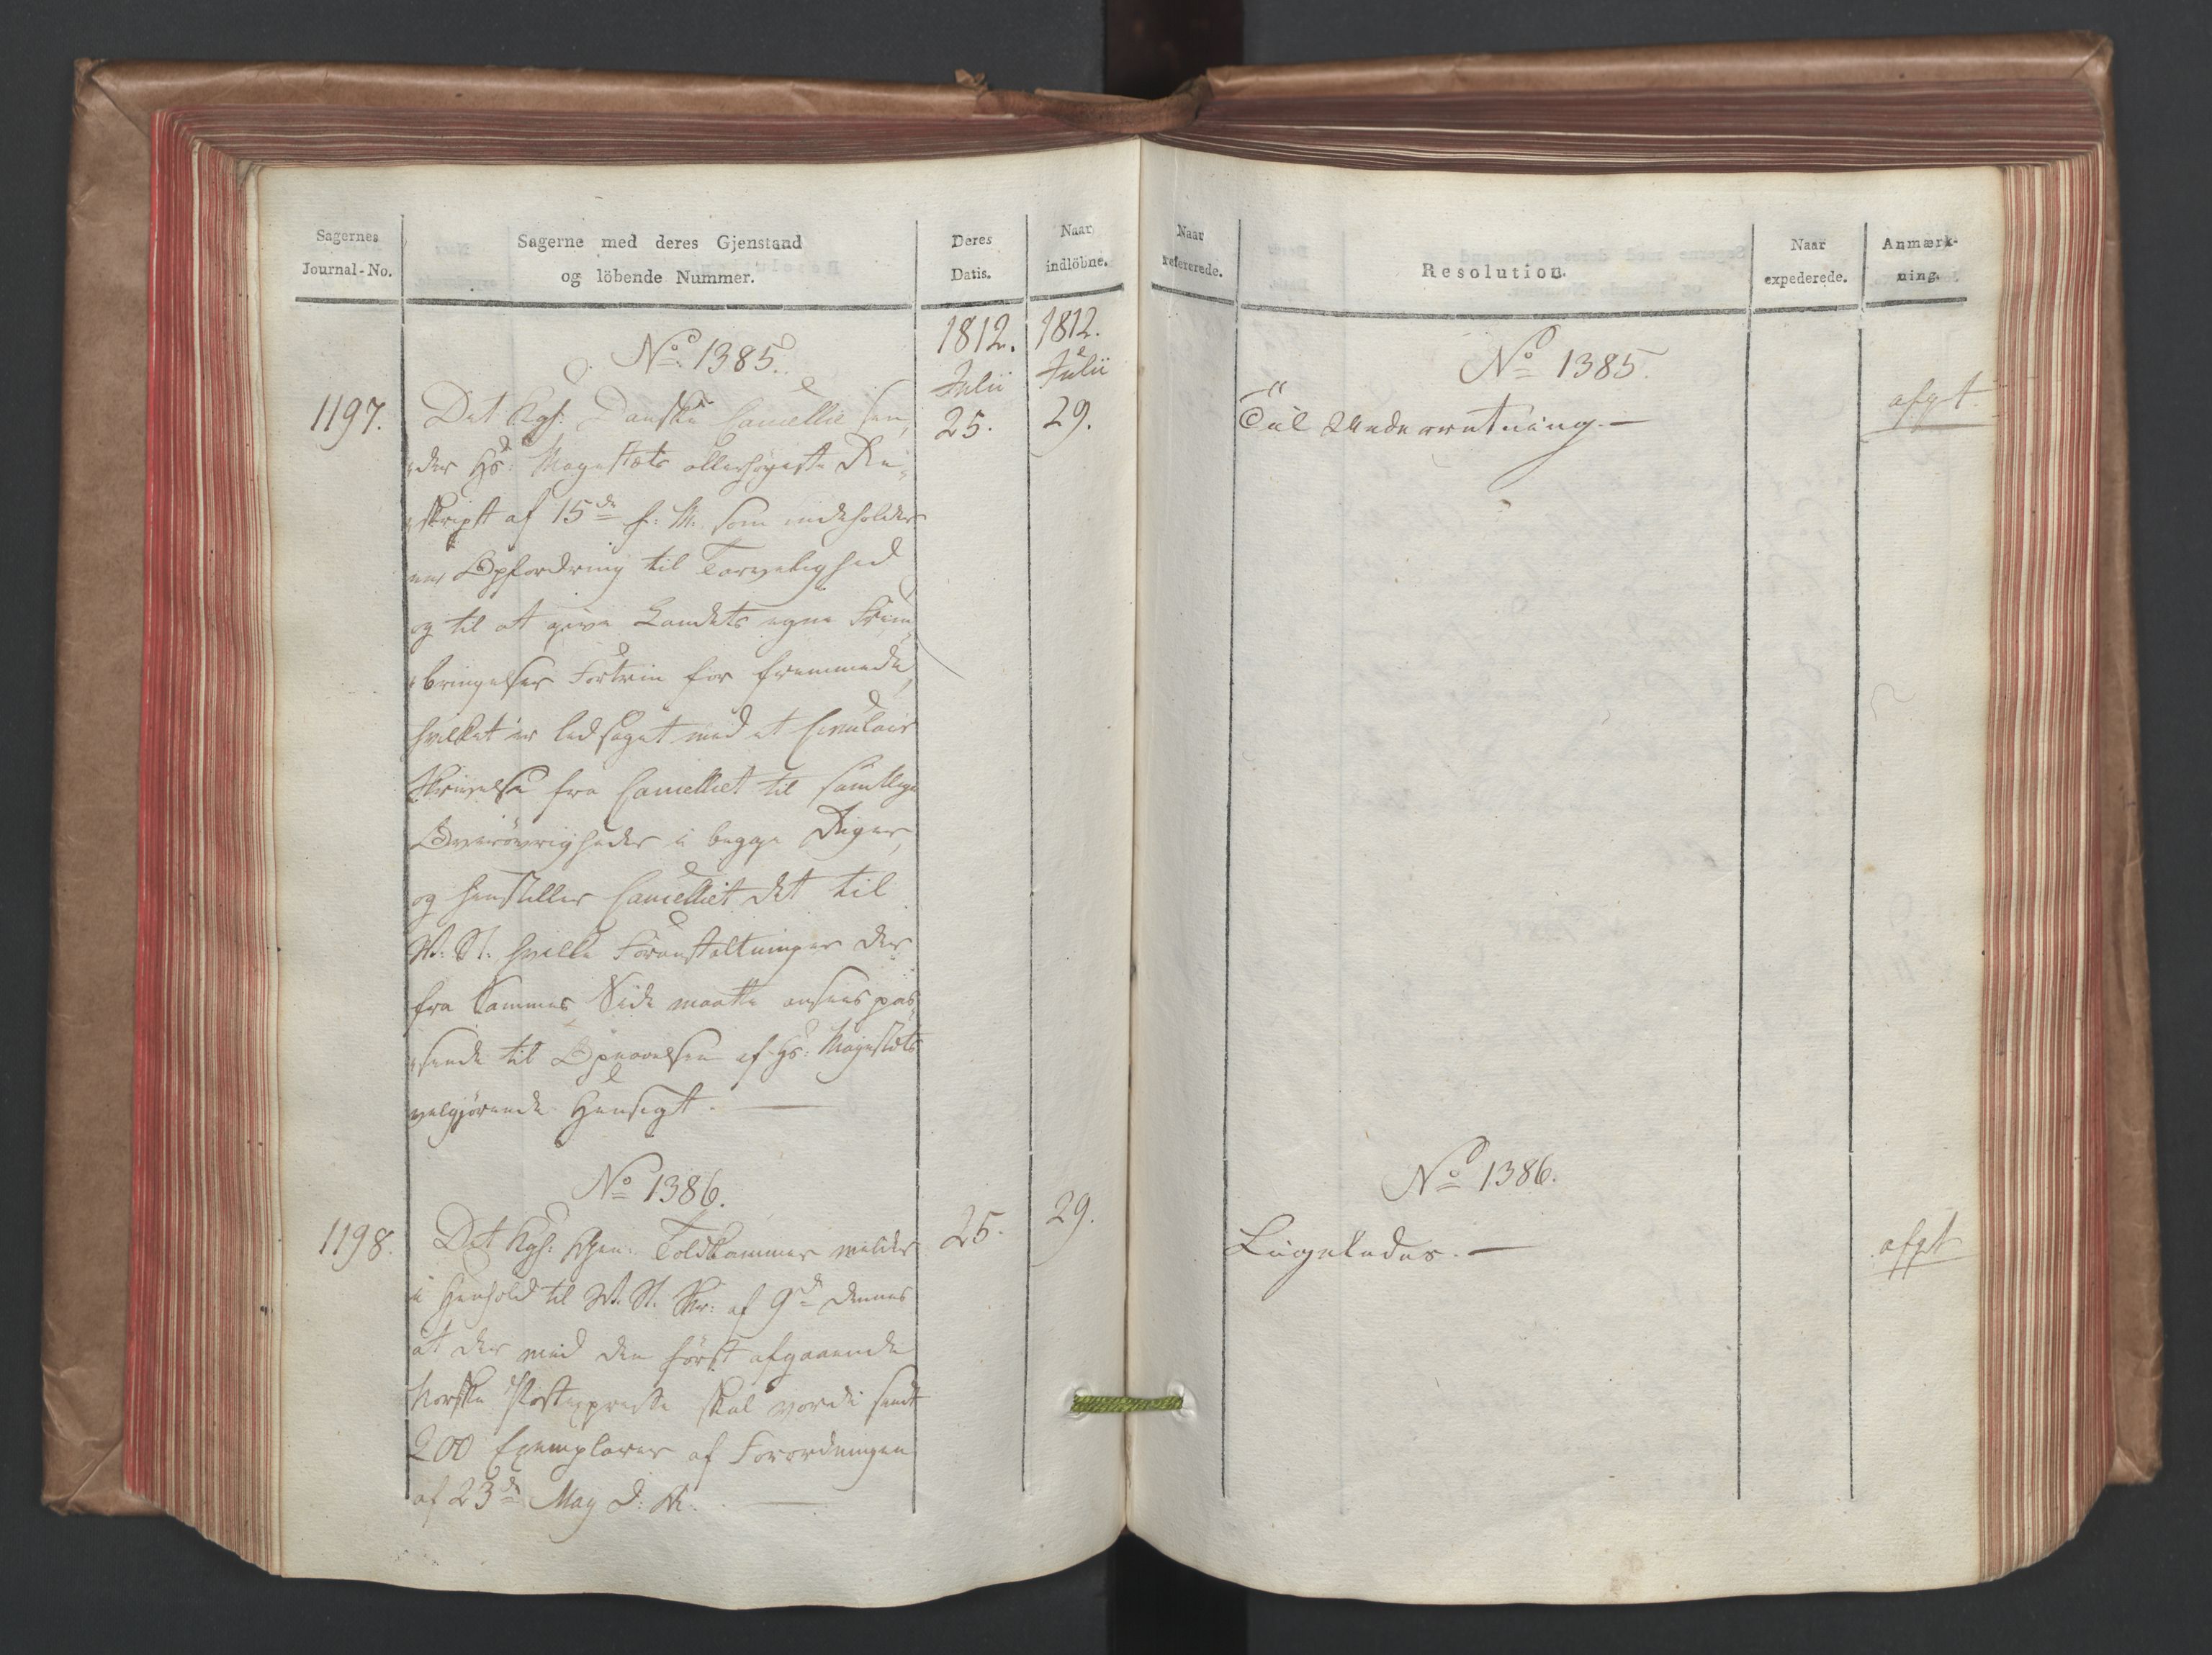 Sagernes
Journal-No.
Sagerne med deres Gjenstand
og löbende Nummer.
Deres
Datis.
Naar
indlöbne.
1812. 1812.
No. 1385.
Julii Julii
1197. Det Kgl: Danske Cancellie sen, 25. 29.
der Hs: Majestæts allerhøjeste Re-
skript af 15de h: M. som indeholder
en Opfordring til Tarvelighed
og til at give Landets egne Frem,
bringelser Fortrin for fremmede,
hvilket er ledsaget med et Circulair
Skrivelse fra Cancelliet til samtlige
Overøvrigheder i begge Riger,
og henstiller Cancelliet det til
R. St. hvilke Foranstaltninger der
fra sammes Side maatte ansees pas,
sende til Opnaaelsen af Hs: Majestæts
velgjørende Hensigt. —
No 1386.
1198. Det Kgl: Gen: Toldkammer melder 25. 29.
i Henhold til R. St. Skr: af 9de dennes
at der med den först afgaaende
Norske Postexpresse skal vorde sendt
200 Exemplarer af Forordningen
af 23de May d: A. —
Naar
refererede.
Resolution.
Naar
expederede.
Anmærk-
ning.
No 1385.
Til Underretning. — afgt.
No 1386.
Ligeledes. — afgt